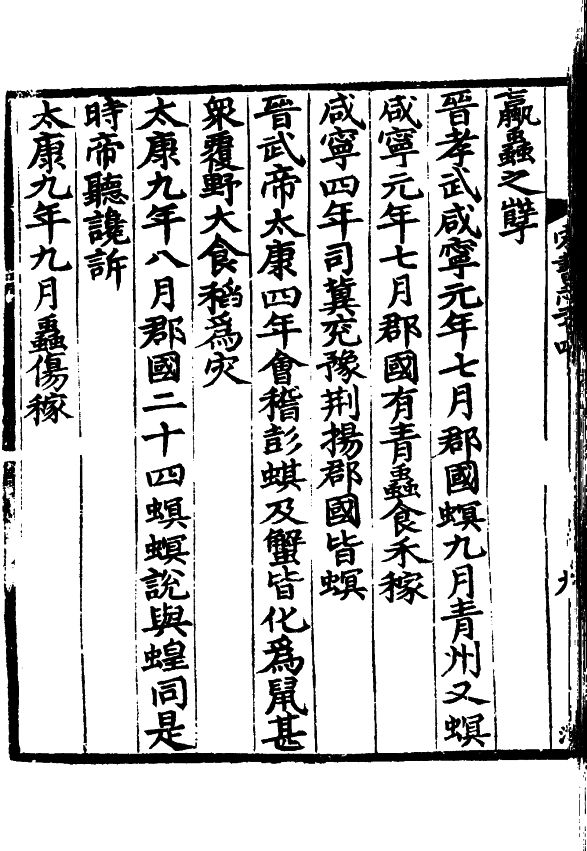 蠃蟲之孽
晉孝武咸寧元年七月郡國螟九月青州又螟
咸寧元年七月郡國有青蟲食禾稼
咸寧四年司冀兖豫荆揚郡國皆螟
晉武帝太康四年會稽彭蜞及蟹皆化爲鼠甚
衆覆野大食稻爲灾
太康九年八月郡國二十四螟螟說與蝗同是
時帝聽讒訢
太康九年九月蟲傷稼